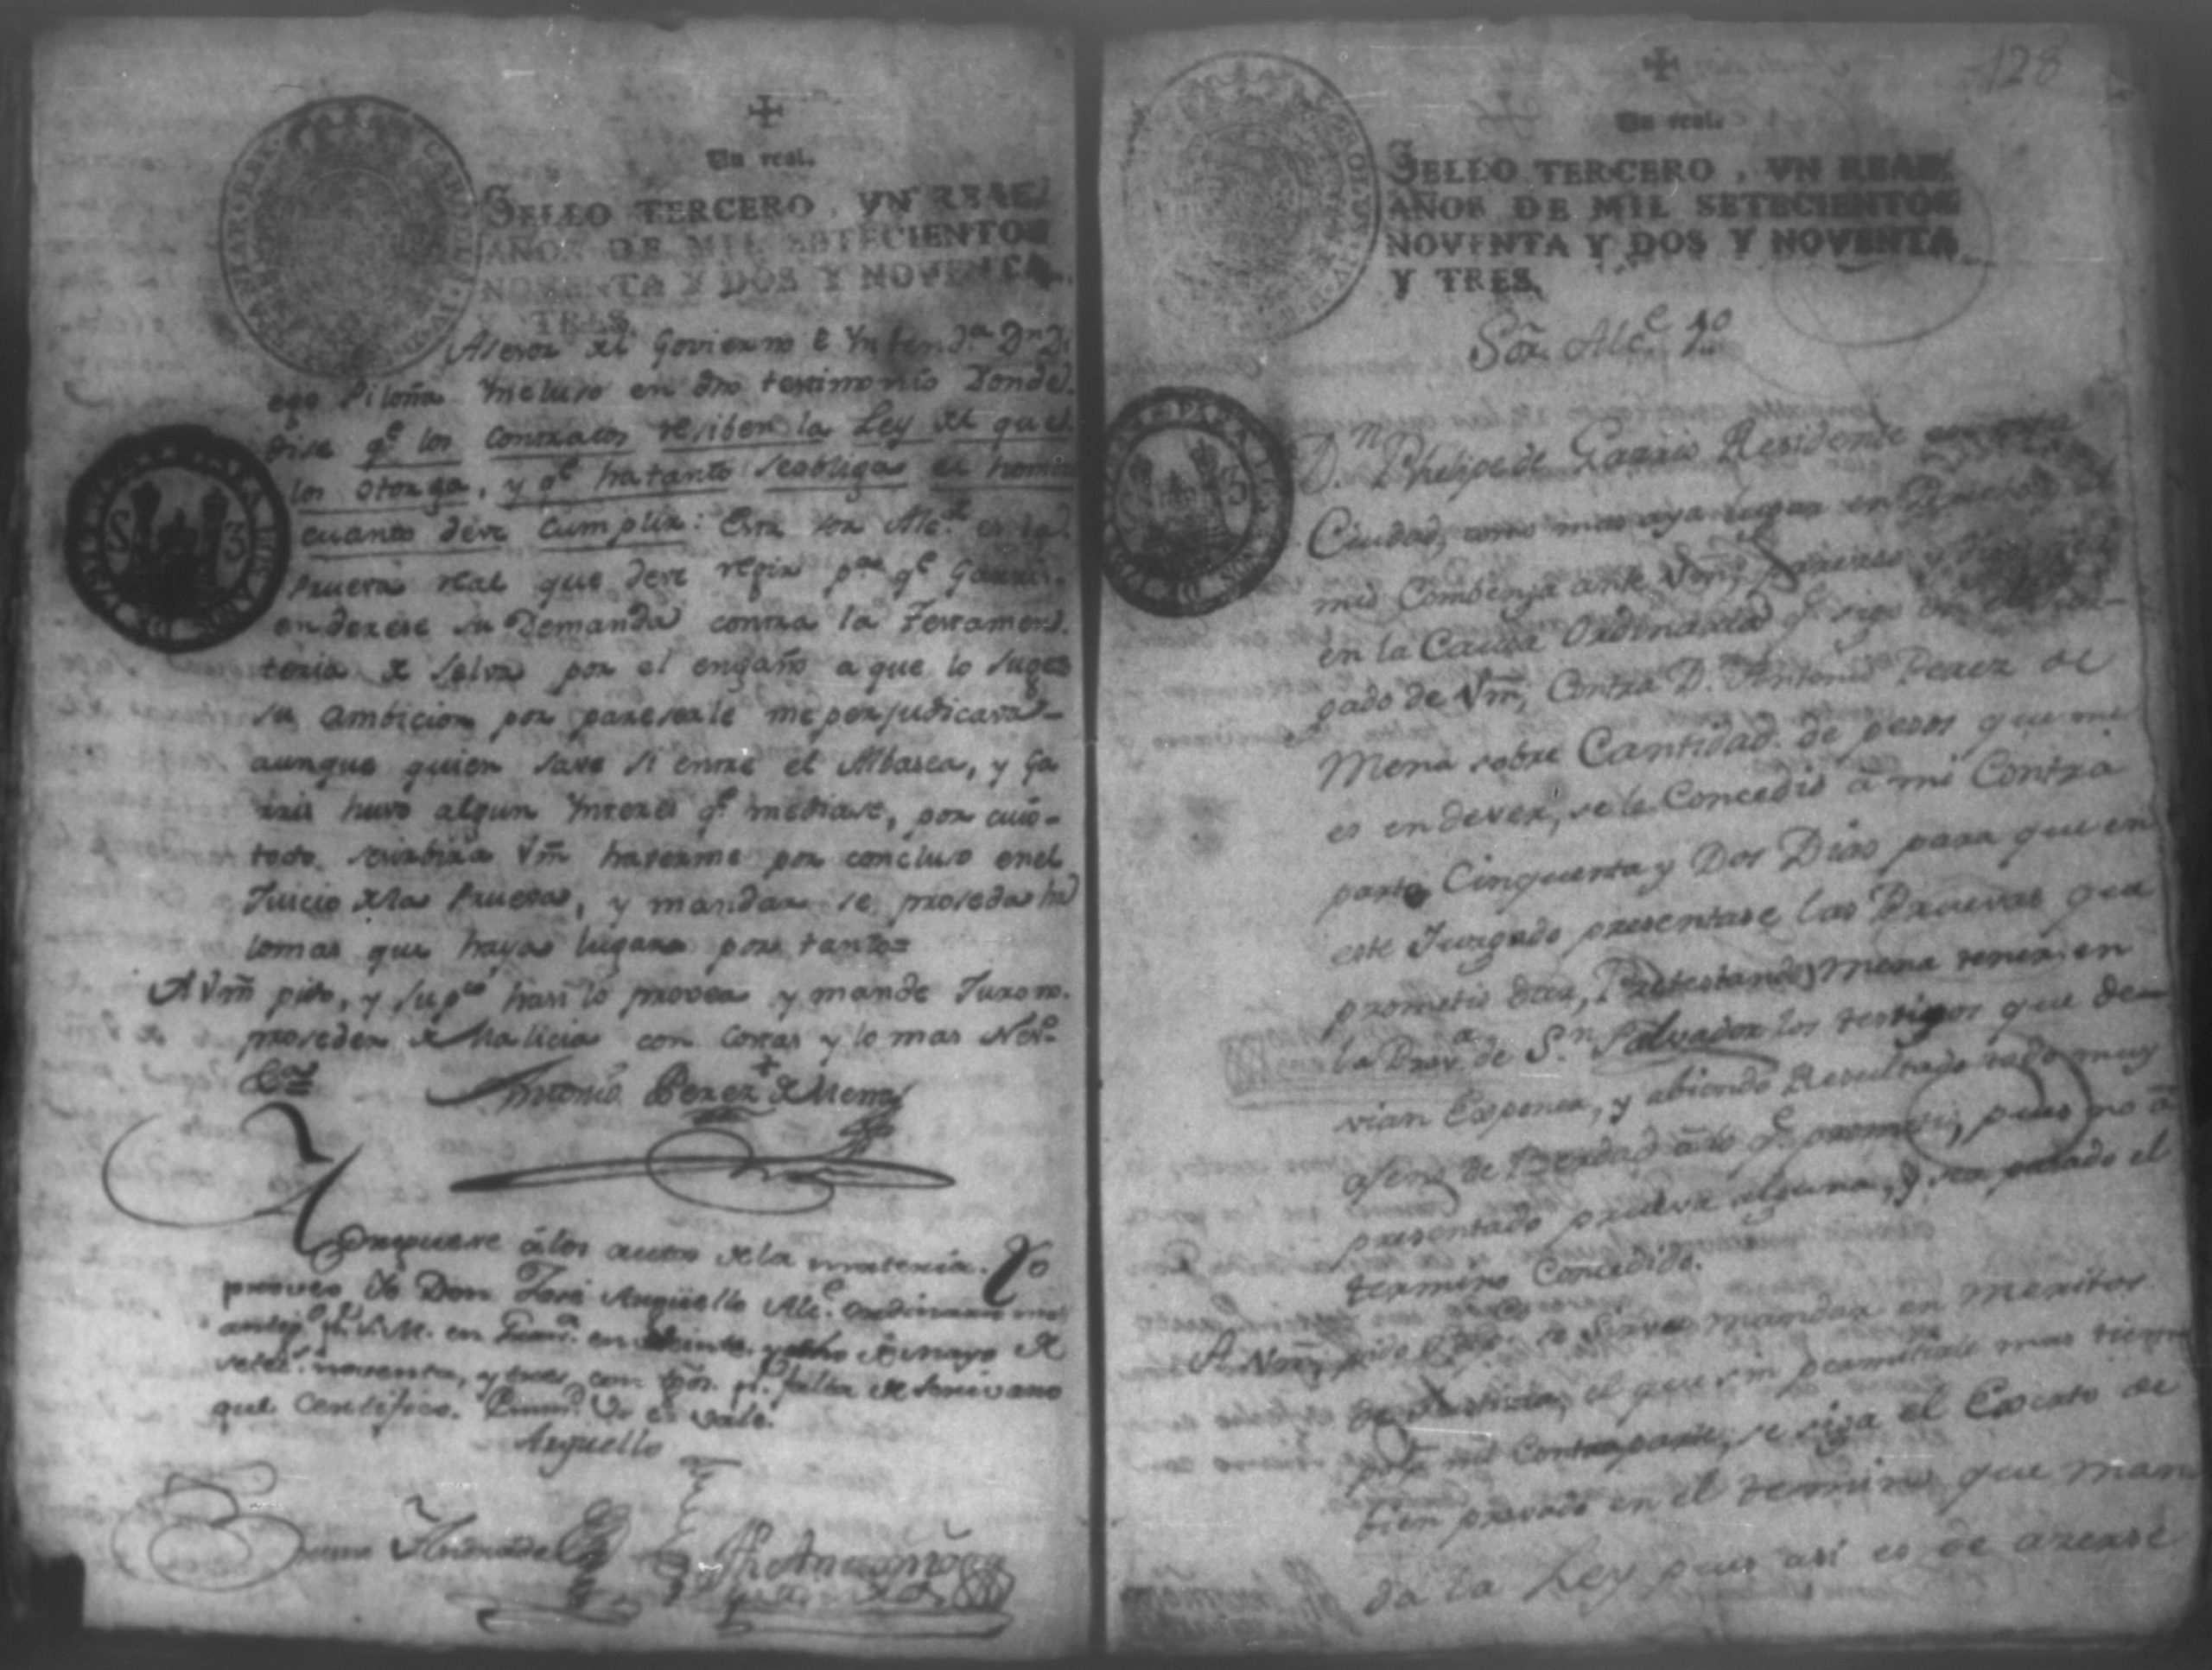 Un real.
SELLO TERCERO, VN REAL
AÑOS DE MIL SETECIENTOS
NOVENTA Y DOS Y NOVENTA
TRES.
Asesor del Govierno è Yntend.ª D.n Di
ego Piloña Yncluso en dho testimonio Donde
dise q.e los Contratos resiben la Ley del que
los otorga, y q.e ha tanto se obliga el hom
cuanto deve cumplir: Esta sor Alc.e es la
Prueva real que deve regir p.ra q.e Garris
enderese su Demanda contra la Testamen
teria de Selva por el engaño a que lo
su ambicion por pareserle me perjudicava
aunque quien save si entre el Albasea, y Ga
rris huvo algun Ynteres q.e mediase, por cuio
todo servirá Vm haverme por concluso en el
Juicio de las Pruevas, y mandar se proseda ha
lo mas que haya lugar por tanto
A Vm pido, y sup.co hasi lo provea y mande Juro no
proseder de Malicia con costas y lo mas Nes.o
Antonio Perez de Mena
Pongase á los autos de la materia. Yo
proveo Yo Don José Arguello Alc.e ordinario
en veinte y ocho de mayo de
setec.s noventa, y tres con tgos. p.r falta de Escrivano
que Certifico.
Arguello
128
Un real.
SELLO TERCERO, VN REAL
AÑOS DE MIL SETECIENTOS
NOVENTA Y DOS Y NOVENTA
Y TRES.
Sor. Alc.e 1.o
D.n Phelipe de Garris Residente en esta
Ciudad, como mas aya lugar en Derecho y
mis Combenga ante Vm, paresco y Digo
en la Causa Ordinaria q.e sigo en el Juz-
gado de Vm, Contra D.n Antonio Perez de
Mena sobre Cantidad de pesos que me
es en dever, se le Concedió á mi Contra
parte, Cinquenta y Dos Dias para que en
este Jurgado presentase las Pruevas que
prometió dar, Protestando Mena tener en
la Prov.a de S.n Salvador los testigos que de-
vian Exponer, y abiendo Resultado todo muy
ageno de Berdad á lo q.e prometió, pues no á
presentado prueva alguna, y sea pasado el
termino Concedido.
A Vm, pido se sirva mandar en meritos
de Justicia, el que sin permitirle mas tiem
po á mi Contraparte, se siga el Exscato de
bien provado en el termino que man
da la Ley pues asi es de aserse